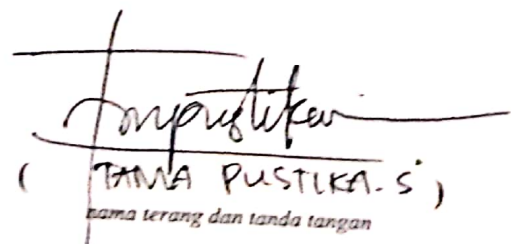 ( TAMA PUSTIKA. S )
nama terang dan tanda tangan